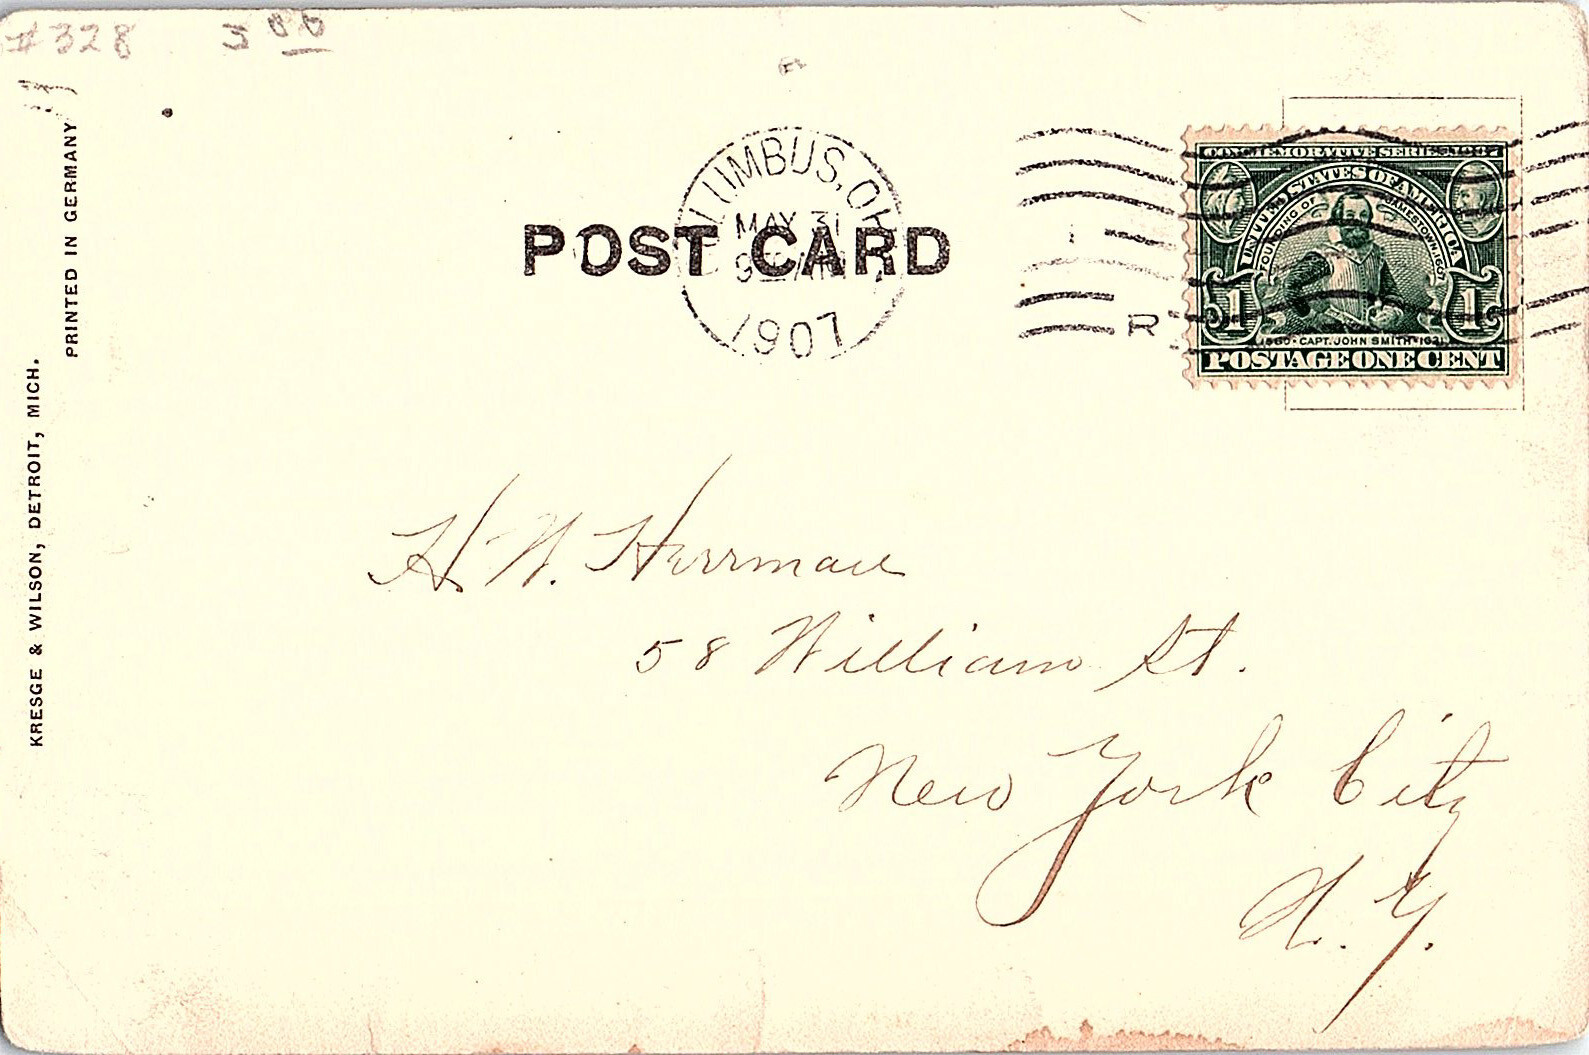 #328 3 00
PRINTED IN GERMANY
KRESGE & WILSON, DETROIT, MICH.
POST CARD
COLUMBUS, OHIO
MAY 31
1907
R
COMMEMORATIVE SERIES 1907
UNITED STATES OF AMERICA
FOUNDING OF JAMESTOWN 1607
1 1
1580 · CAPT. JOHN SMITH · 1631
POSTAGE ONE CENT
H. W. Herrman
58 William St.
New York City
N. Y.